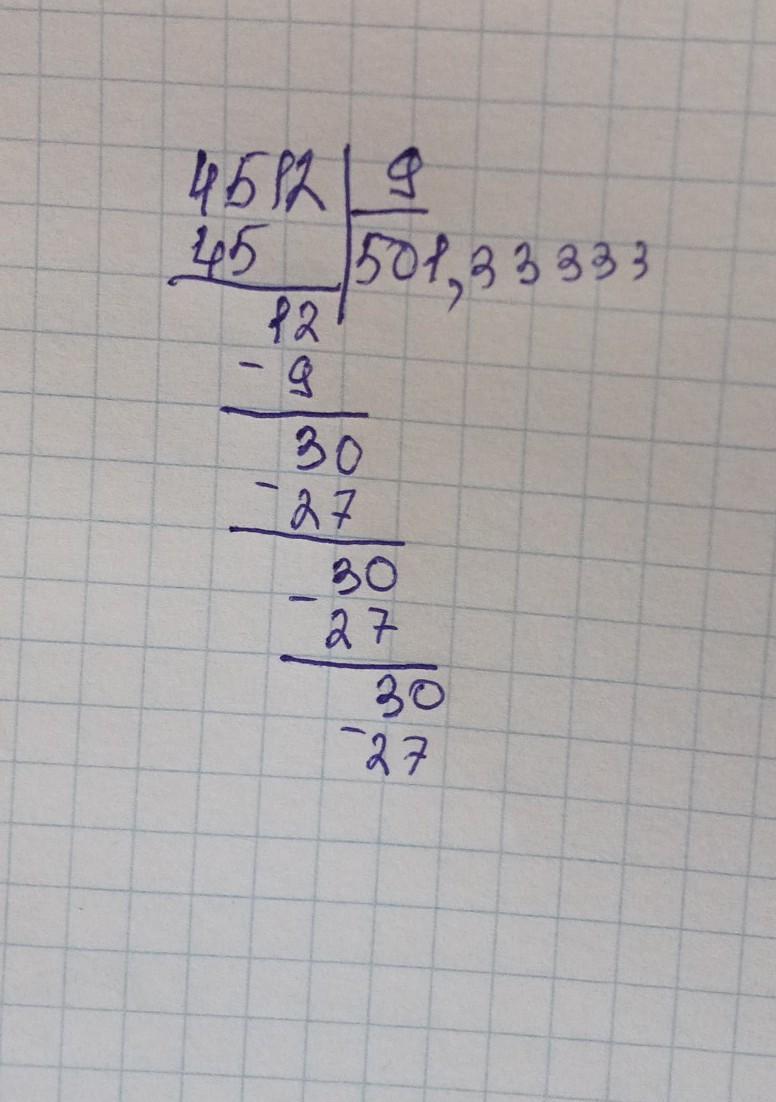 4512 9
45 501,33333
12
- 9
30
- 27
30
- 27
30
- 27